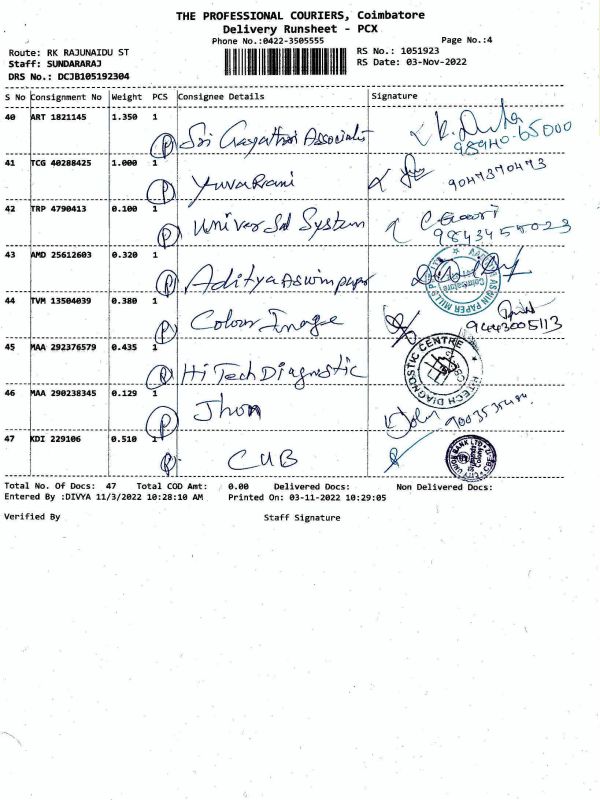 THE PROFESSIONAL COURIERS, Coimbatore
Delivery Runsheet - PCX
Phone No.:0422-3505555 Page No.:4
Route: RK RAJUNAIDU ST RS No.: 1051923
Staff: SUNDARARAJ RS Date: 03-Nov-2022
DRS No.: DCJB105192304
S No Consignment No Weight PCS Consignee Details Signature
40 ART 1821145 1.350 1
P Sri Gayathri Associates K. 98940-65000
41 TCG 40288425 1.000 1
P YuvaRani 9047370473
42 TRP 4790413 0.100 1
P Universal System C. Gowri
9843455023
43 AMD 25612603 0.320 1
P Aditya Aswin paper ASWIN PAPER MILLS Coimbatore
44 TVM 13504039 0.380 1
P Colour Image 9443005113
45 MAA 292376579 0.435 1
P Hi Tech Diagnostic HITECH DIAGNOSTIC CENTRE
46 MAA 290238345 0.129 1
P Jhon John
47 KDI 229106 0.510 1
P CUB UNION BANK LTD
Total No. Of Docs: 47 Total COD Amt: 0.00 Delivered Docs: Non Delivered Docs:
Entered By :DIVYA 11/3/2022 10:28:10 AM Printed On: 03-11-2022 10:29:05
Verified By Staff Signature